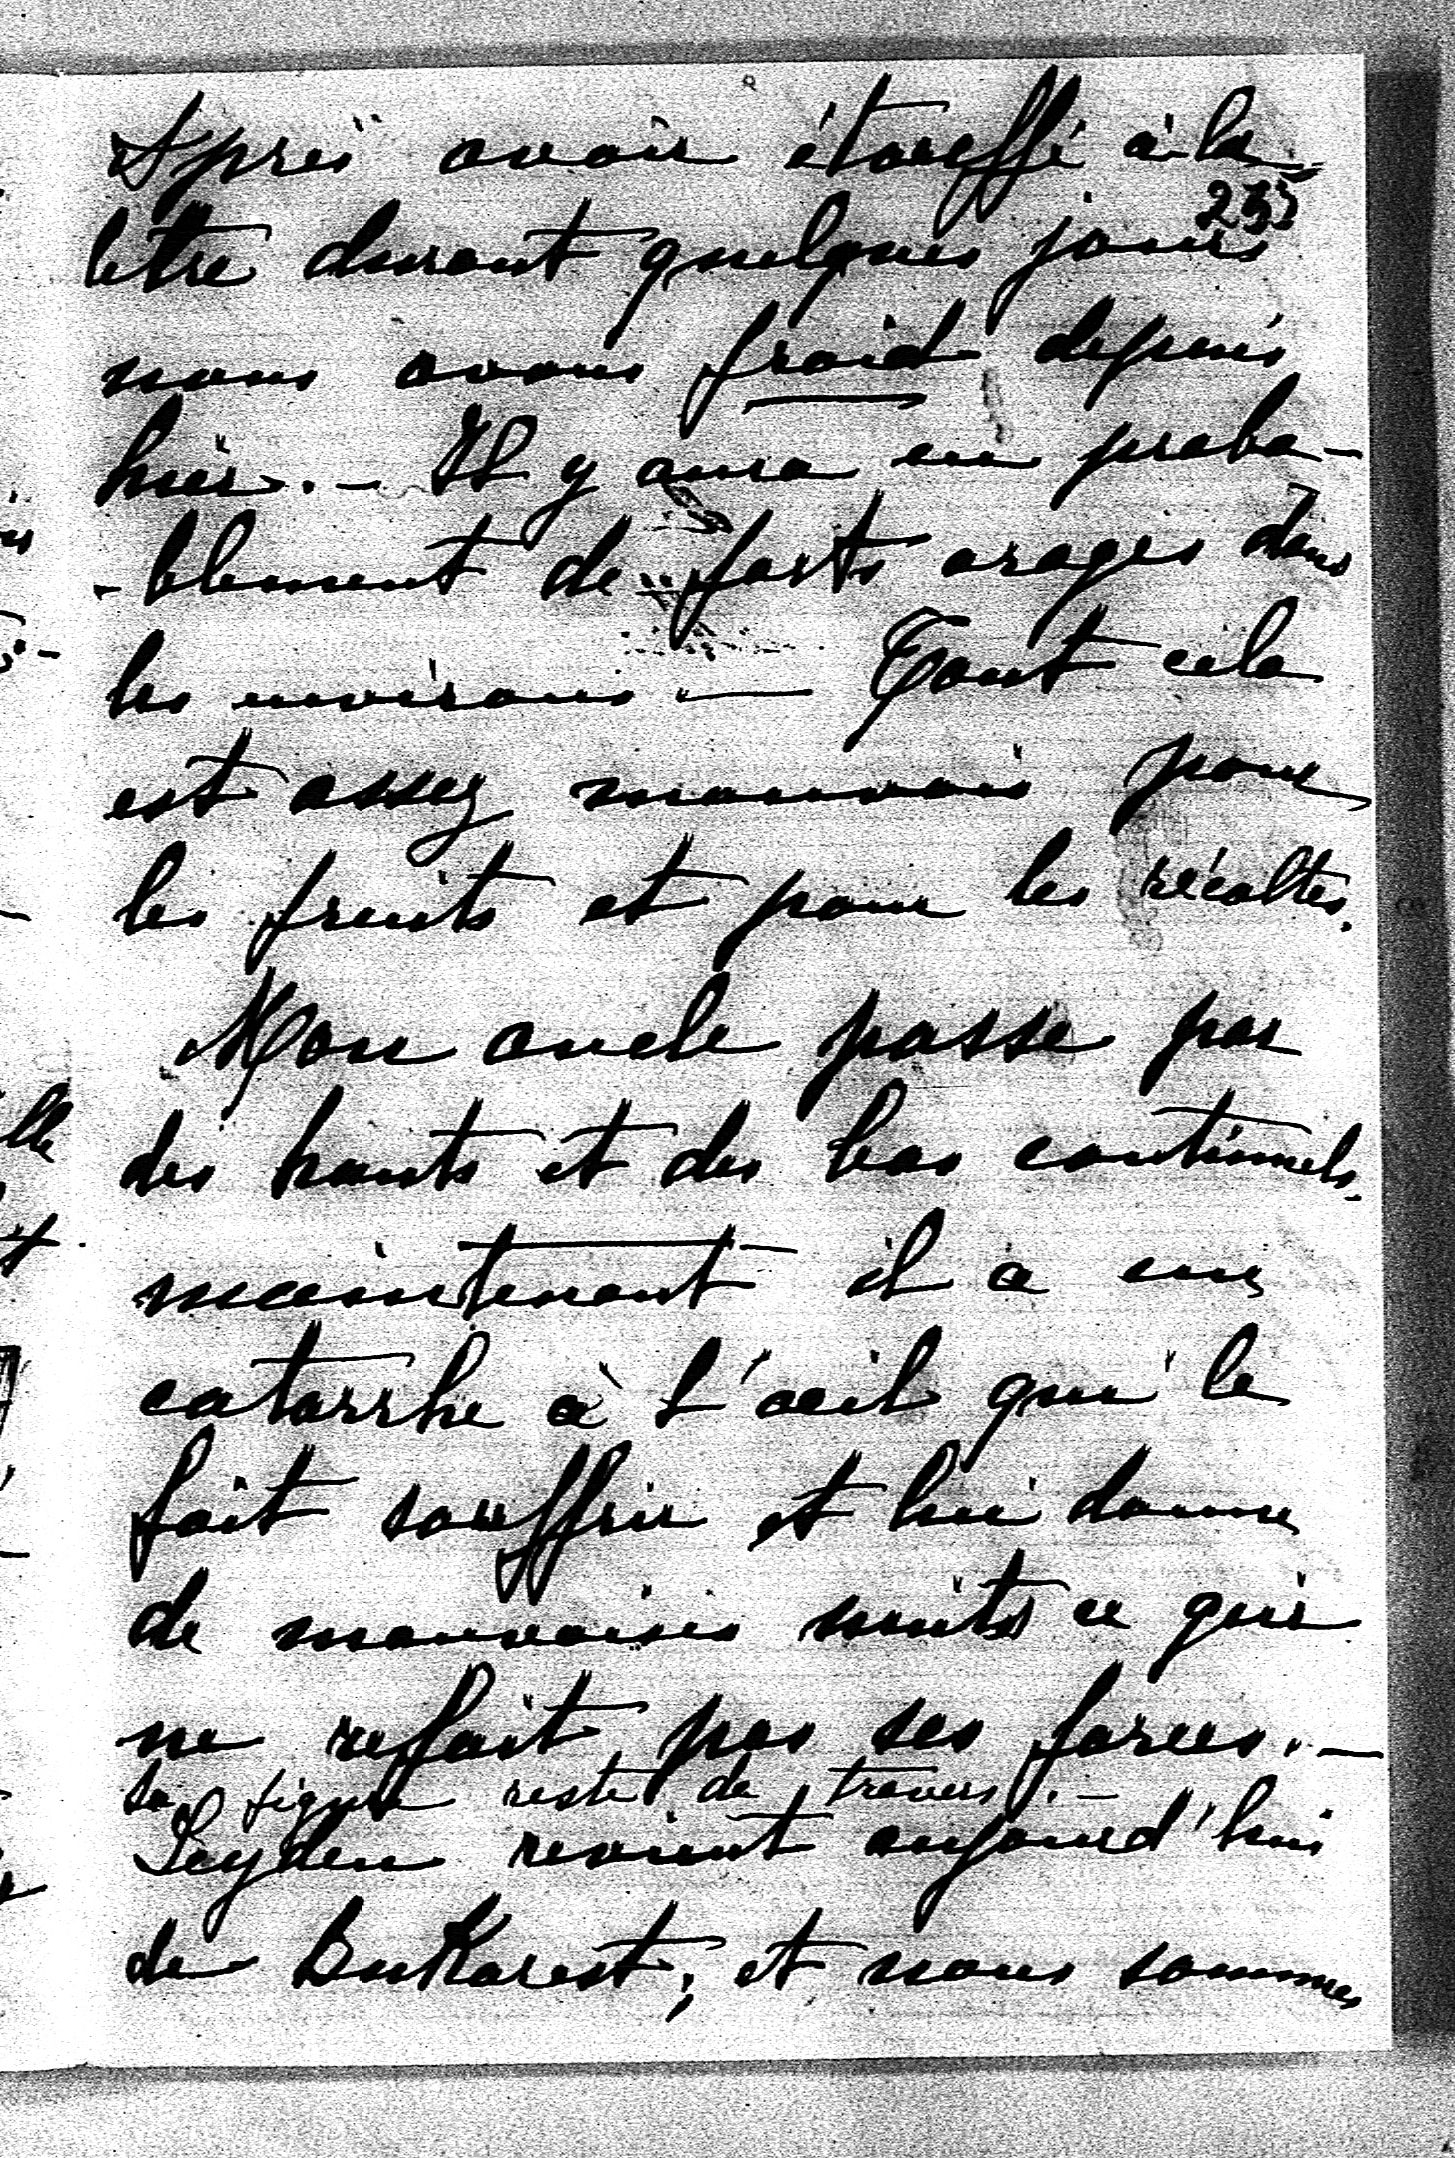 Après avoir étouffé à la
235
lettre durant quelques jours
nous avons froid depuis
hier. – Il y aura eu proba-
-blement de forts orages dans
les environs — Tout cela
est assez mauvais pour
les fruits et pour les récoltes.
Mon oncle passe par
des hauts et des bas continuels.
maintenant il a un
catarrhe à l'œil qui le
fait souffrir et lui donne
de mauvaises nuits ce qui
ne refait pas ses forces. —
Sa figure reste de travers. —
Leyden revient aujourd'hui
de BuKarest; et nous sommes